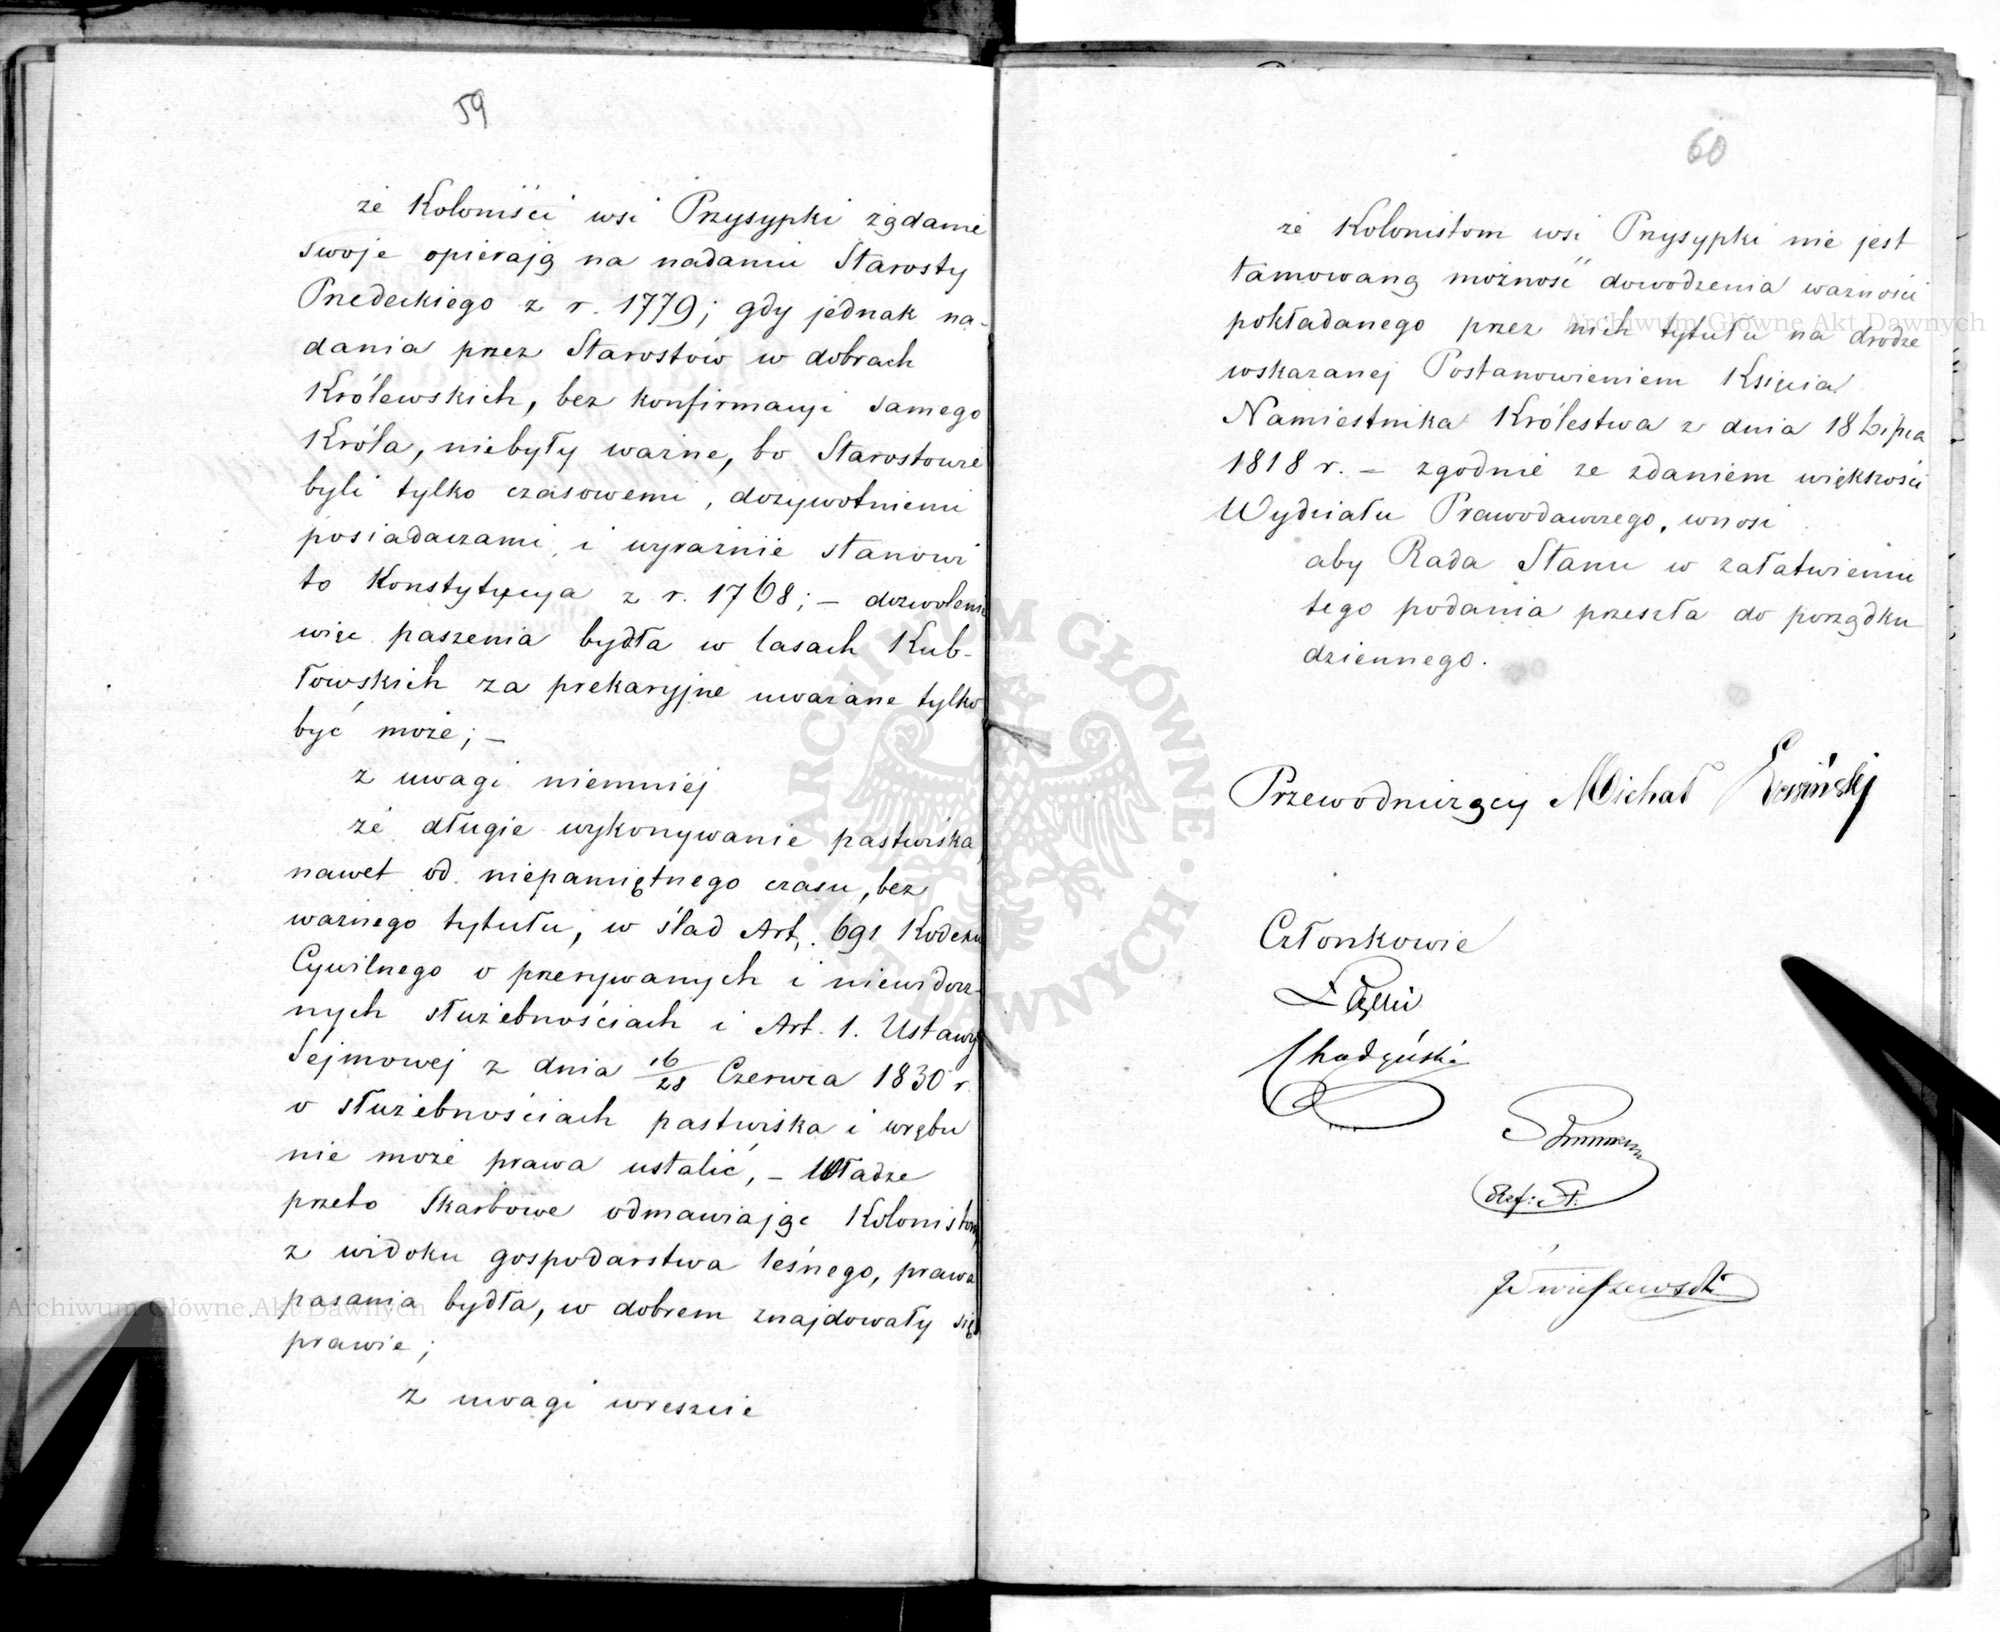 59
że Koloniści wsi Przysypki żądanie
swoje opierają na nadaniu Starosty
Przedeckiego z r. 1779; gdy jednak na-
dania przez Starostów w dobrach
Królewskich, bez konfirmacyi samego
Króla, niebyły ważne, bo Starostowie
byli tylko czasowemi, dożywotniemi
posiadaczami, i wyraźnie stanowi
to Konstytucya z r. 1768; – dozwolenie
więc paszenia bydła w lasach Kub-
łowskich za prekaryjne uważane tylko
być może; –
z uwagi niemniej
że długie wykonywanie pastwiska,
nawet od niepamiętnego czasu, bez
ważnego tytułu, w ślad Art. 691 Kodexu
Cywilnego o przerywanych i niewidocz-
nych służebnościach i Art. 1. Ustawy
Sejmowej z dnia 16/28 Czerwca 1830 r.
o służebnościach pastwiska i wrębu
nie może prawa ustalić, – Władze
przeto Skarbowe odmawiając Kolonistom,
z widoku gospodarstwa leśnego, prawa
pasania bydła, w dobrem znajdowały się
prawie;
z uwagi wreszcie
60
że Kolonistom wsi Przysypki nie jest
tamowaną możność dowodzenia ważności
pokładanego przez nich tytułu na drodze
wskazanej Postanowieniem Księcia
Namiestnika Królestwa z dnia 18 Lipca
1818 r. – zgodnie ze zdaniem większości
Wydziału Prawodawczego, wnosi
aby Rada Stanu w załatwieniu
tego podania przeszła do porządku
dziennego.
Przewodniczący Michał
Członkowie
Chądzyński
Ref: St.
Archiwum Główne Akt Dawnych
Archiwum Główne Akt Dawnych
ARCHIWUM GŁÓWNE AKT DAWNYCH